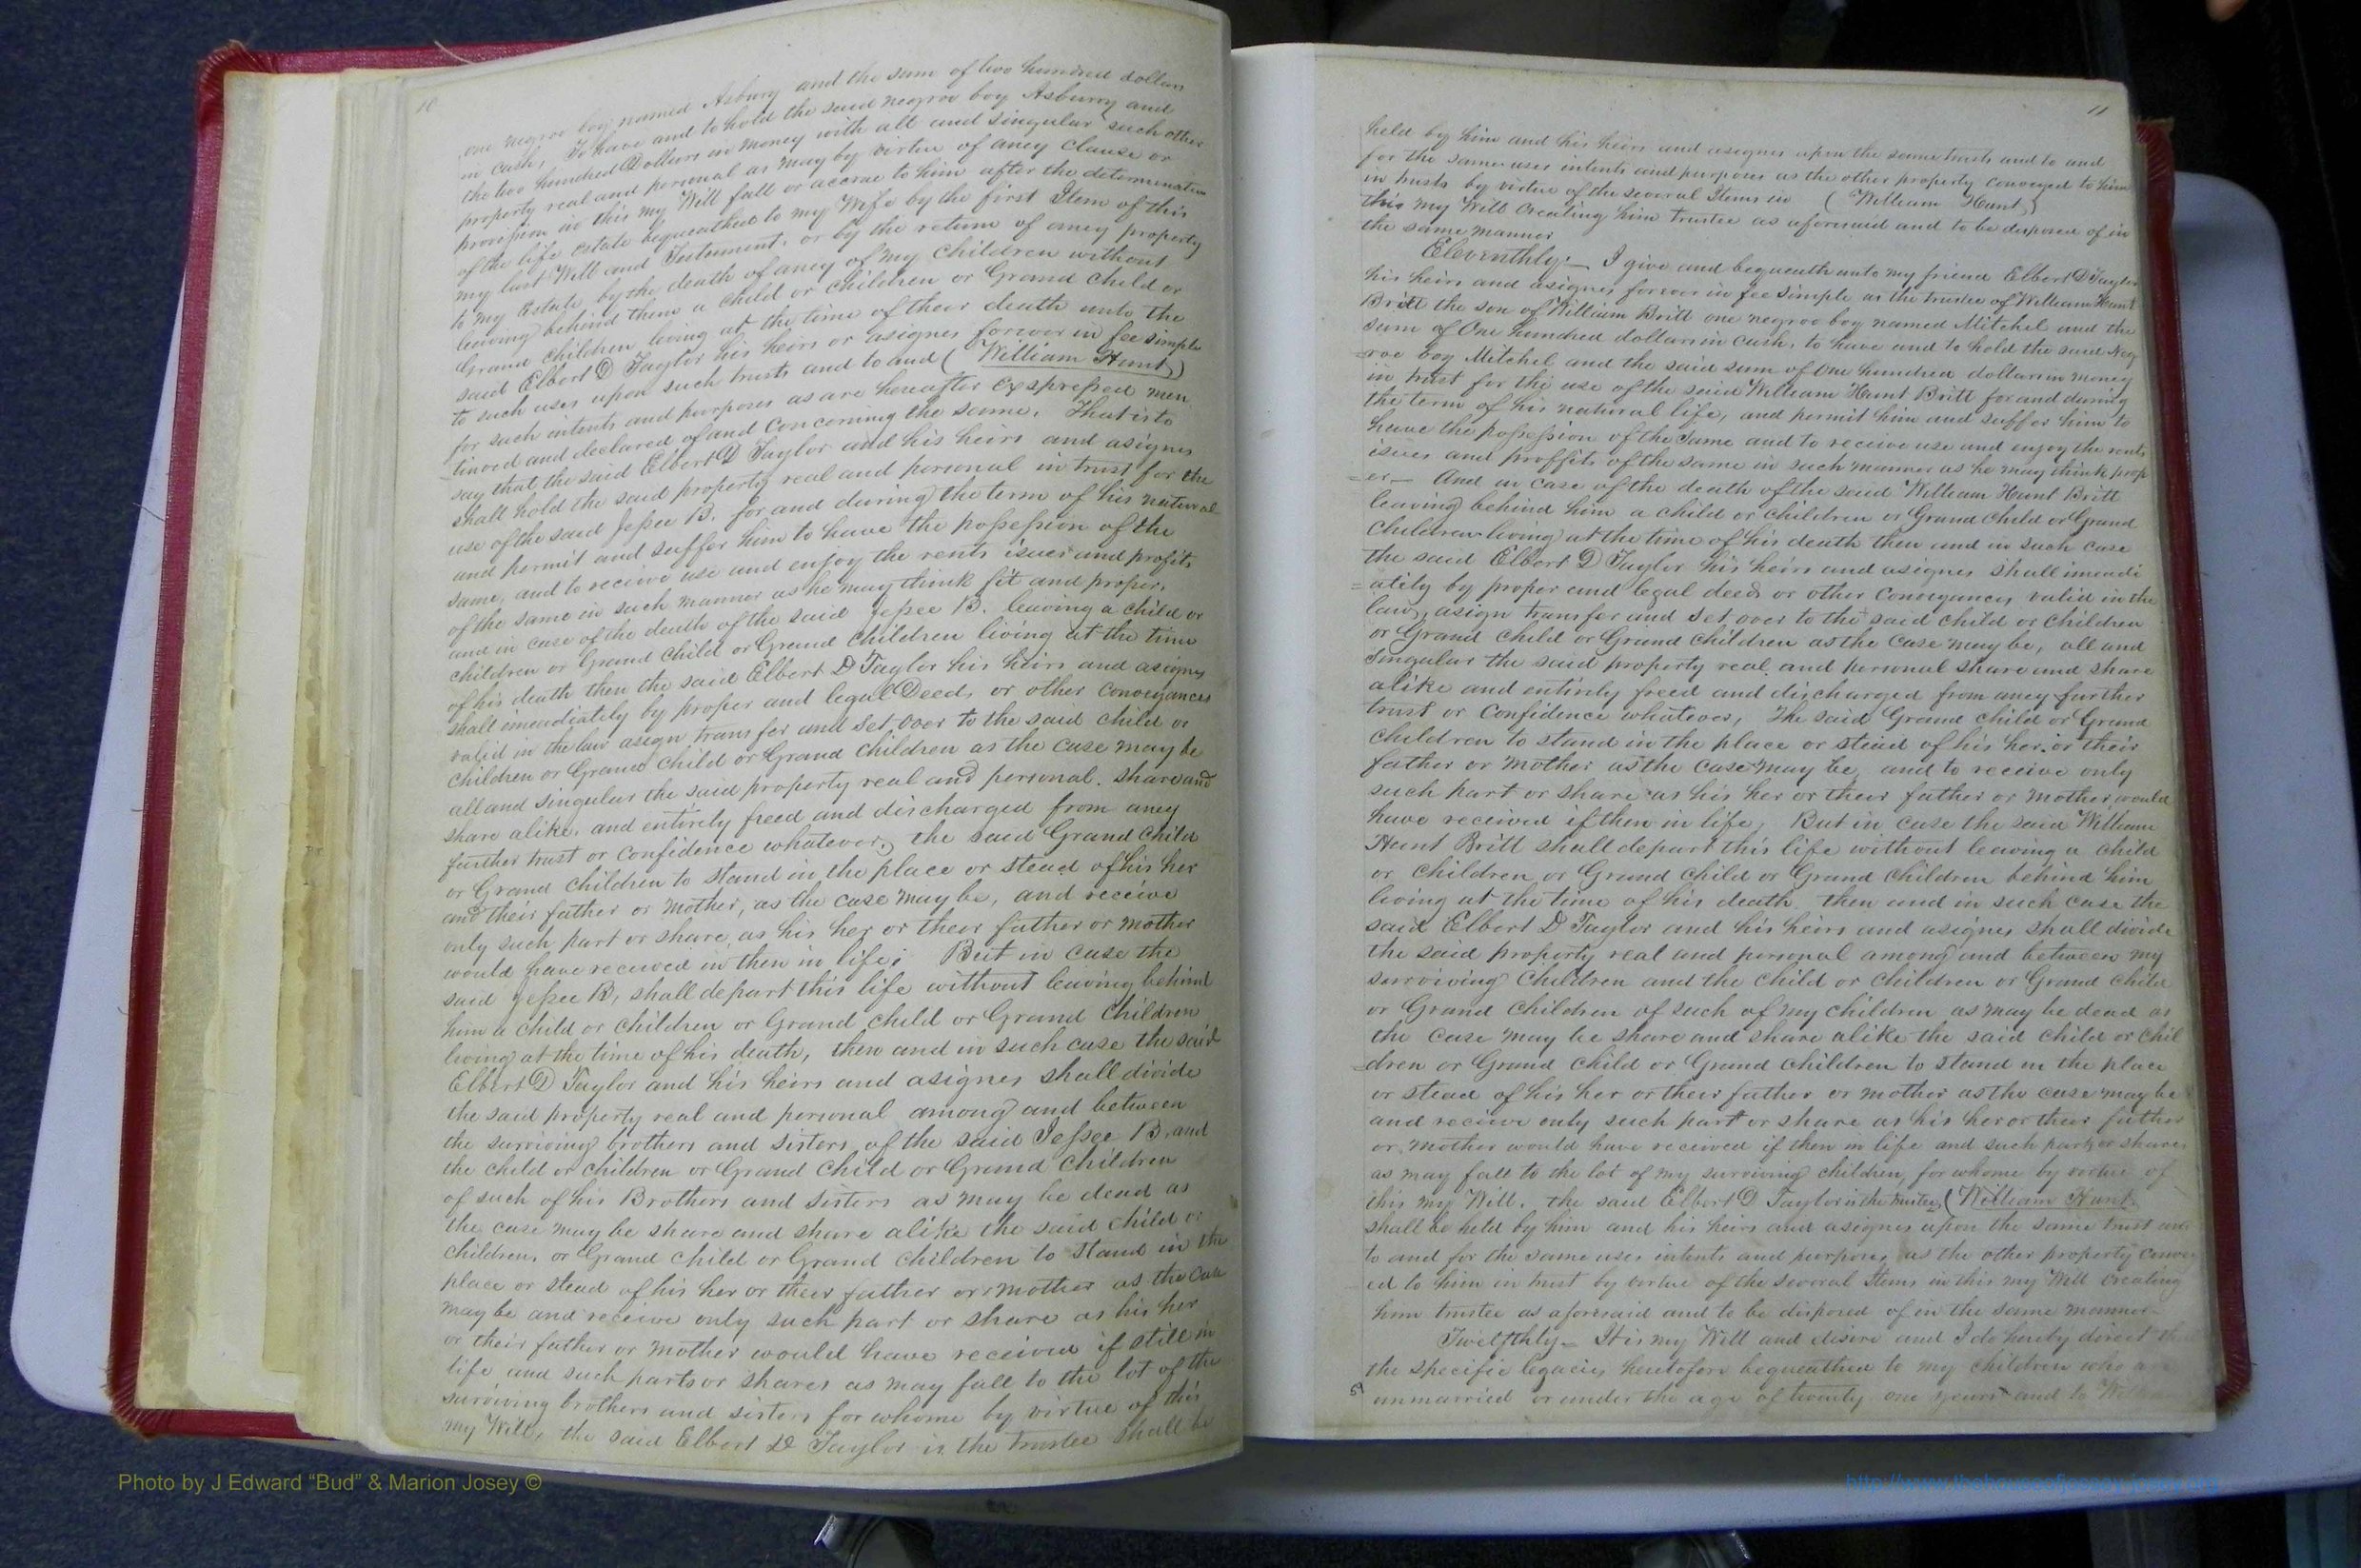 10
one negroe boy named Asbury and the sum of two hundred dollars
in cash, To have and to hold the said negroe boy Asburry and
the two hundred Dollars in money with all and singular such other
property real and personal as may by virtue of aney Clause or
provision in this my Will fall or accrue to him after the determination
of the life estate bequeathed to my Wife by the first Item of this
my last Will and Testament, or by the return of aney property
to my Estate by the death of aney of my Children without
leaving behind them a child or children or Grand Child or
Grand Children living at the time of their death unto the
said Elbert D Taylor his heirs or asignes forever in fee simple
to such uses upon such trusts and to and (William Hunt)
for such intents and purposes as are hereafter expressed men
tioned and declared of and concerning the same. That is to
say that the said Elbert D Taylor and his heirs and asignes
shall hold the said property real and personal in trust for the
use of the said Jessee B. for and during the term of his natural
and permit and suffer him to have the possession of the
same, and to receive use and enjoy the rents isues and profits
of the same in such manner as he may think fit and proper,
and in case of the death of the said Jessee B. leaving a child or
children or Grand Child or Grand Children living at the time
of his death then the said Elbert D Taylor his heirs and asignes
shall imediately by proper and legal Deeds or other conveyances
valid in the law asign transfer and set over to the said child or
children or Grand Child or Grand children as the case may be
all and singular the said property real and personal. share and
share alike, and entirely freed and discharged from aney
further trust or confidence whatever, the said Grand Child
or Grand Children to stand in the place or stead of his her
and their father or mother, as the case may be, and receive
only such part or share as his her or their father or mother
would have received in then in life; But in case the
said Jessee B, shall depart this life without leaving behind
him a child or children or Grand child or Grand Children
living at the time of his death, then and in such case the said
Elbert D Taylor and his heirs and asignes shall divide
the said property real and personal among and between
the surviving brothers and sisters of the said Jessee B, and
the child or children or Grand Child or Grand Children
of such of his Brothers and Sisters as may be dead as
the case may be share and share alike the said child or
children, or Grand child or Grand children to stand in the
place or stead of his her or their father or mother as the case
may be and receive only such part or share as his her
or their father or mother would have received if still in
life and such parts or shares as may fall to the lot of the
surviving brothers and sisters for whome by virtue of this
my Will, the said Elbert D Taylor is the trustee shall be
11
held by him and his heirs and asignes upon the same trusts and to and
for the same uses intents and purposes as the other property conveyed to him
in trusts by virtue of the several Items in (William Hunt)
this my Will Creating him trustee as aforesaid and to be disposed of in
the same manner
Eleventhly:— I give and bequeath unto my friend Elbert D Taylor
his heirs and asignes forever in fee simple as the trustee of William Hunt
Britt the son of William Britt one negroe boy named Mitchel and the
sum of One hundred dollars in cash, to have and to hold the said Neg
=roe boy Mitchel and the said sum of One hundred dollars in money
in trust for the use of the said William Hunt Britt for and during
the term of his natural life, and permit him and suffer him to
have the possession of the same and to receive use and enjoy the rents
isues and proffits of the same in such manner as he may think prop
=er— And in case of the death of the said William Hunt Britt
leaving behind him a child or children or Grand Child or Grand
Children living at the time of his death then and in such case
the said Elbert D Taylor his heirs and asignes shall imedi
=ately by proper and legal deeds or other conveyances valid in the
law, asign transfer and set over to the said child or children
or Grand child or Grand children as the case may be, all and
singular the said property real and personal share and share
alike and entirely freed and discharged from aney further
trust or confidence whatever, The said Grand child or Grand
children to stand in the place or stead of his her or their
father or mother as the case may be, and to receive only
such part or share as his her or their father or mother would
have received if then in life, But in case the said William
Hunt Britt shall depart this life without leaving a child
or children or Grand child or Grand children behind him
living at the time of his death then and in such case the
said Elbert D Taylor and his heirs and asignes shall divide
the said property real and personal among and between my
surviving Children and the child or children or Grand child
or Grand children of such of my children as may be dead as
the case may be share and share alike the said child or chil
=dren or Grand child or Grand children to stand in the place
or stead of his her or their father or mother as the case may be
and receive only such part or share as his her or their father
or mother would have received if then in life and such parts or shares
as may fall to the lot of my surviving children, for whome by virtue of
this my Will. the said Elbert D Taylor is the trustee (William Hunt)
shall be held by him and his heirs and asignes upon the same trust and
to and for the same uses intents and purposes, as the other property convey
ed to him in trust by virtue of the several Items in this my Will creating
him trustee as aforesaid and to be disposed of in the same manner—
Twelfthly= It is my Will and desire and I do hereby direct that
the specific legacies heretofore bequeathed to my children who
unmarried or under the age of twenty one years and to William
Photo by J Edward “Bud” & Marion Josey ©